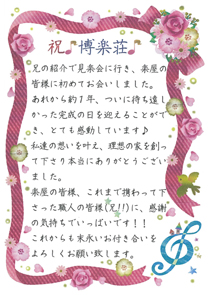 祝♪博楽荘♪
兄の紹介で見楽会に行き、楽屋の
皆様に初めてお会いしました。
あれから約1年、ついに待ち遠し
かった完成の日を迎えることがで
き、とても感動しています♪
私達の想いを叶え、理想の家を創っ
て下さり本当にありがとうござい
ました。
楽屋の皆様、これまで携わって下
さった職人の皆様(兄!!)に、感謝
の気持ちでいっぱいです!!
これからも末永いお付き合いを
よろしくお願い致します。